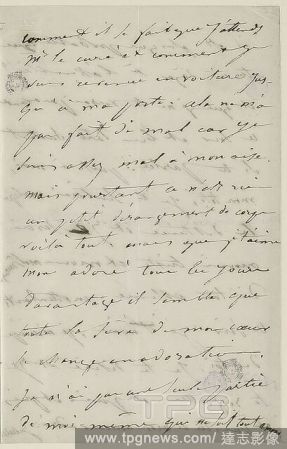 comment il se fait que j'attends
Mr le curé et comment je
suis revenue en voiture jus
qu'à ma porte. cela ne m'a
pas fait de mal car je
suis assez mal à mon aise
mais pourtant ce n'est rien
un petit dérangement de corps
voilà tout. mais que je t'aime
mon adoré tous les jours
davantage il semble que
toute la de mon cœur
se change en adoration
Je n'ai pas une seule partie
de moi même qui ne soit tout
TPG
www.tpgnews.com / 達志影像